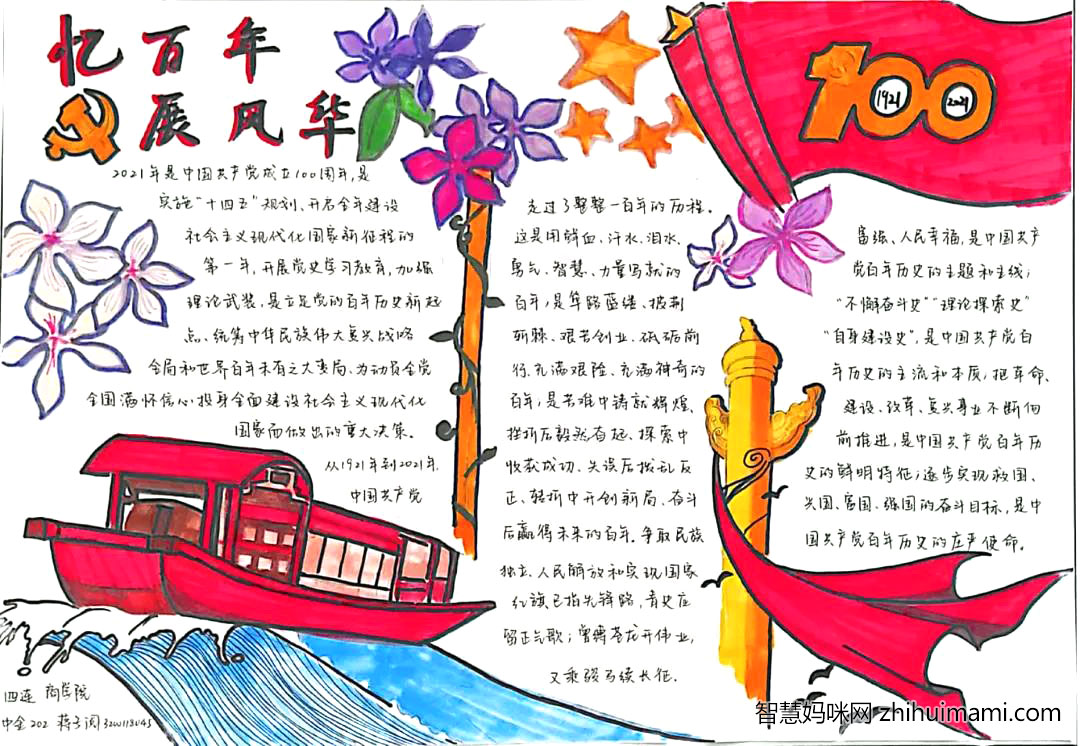 忆百年
展风华
100
1921
2021
2021年是中国共产党成立100周年,是
实施"十四五"规划、开启全年建设
社会主义现代化国家新征程的
第一年,开展党史学习教育,加强
理论武装,是立足党的百年历史新起
点、统筹中华民族伟大复兴战略
全局和世界百年未有之大变局、为动员全党
全国满怀信心投身全面建设社会主义现代化
国家而做出的重大决策。
从1921年到2021年,
中国共产党
走过了整整一百年的历程。
这是用鲜血、汗水、泪水、
勇气、智慧、力量写就的
百年;是筚路蓝缕、披荆
斩棘、艰苦创业、砥砺前
行、充满艰险、充满神奇的
百年;是苦难中铸就辉煌、
挫折后毅然奋起、探索中
收获成功、失误后拨乱反
正、转折中开创新局、奋斗
后赢得未来的百年。争取民族
独立、人民解放和实现国家
富强、人民幸福,是中国共产
党百年历史的主题和主线;
"不懈奋斗史""理论探索史"
"自身建设史",是中国共产党百
年历史的主流和本质;把革命、
建设、改革、复兴事业不断向
前推进,是中国共产党百年历
史的鲜明特征;逐步实现救国、
兴国、富国、强国的奋斗目标,是中
国共产党百年历史的庄严使命。
红旗已指先锋路,青史应
留正气歌;曾缚苍龙开伟业,
又乘骏马续长征。
四连 商学院
中金202
智慧妈咪网zhihuimami.com